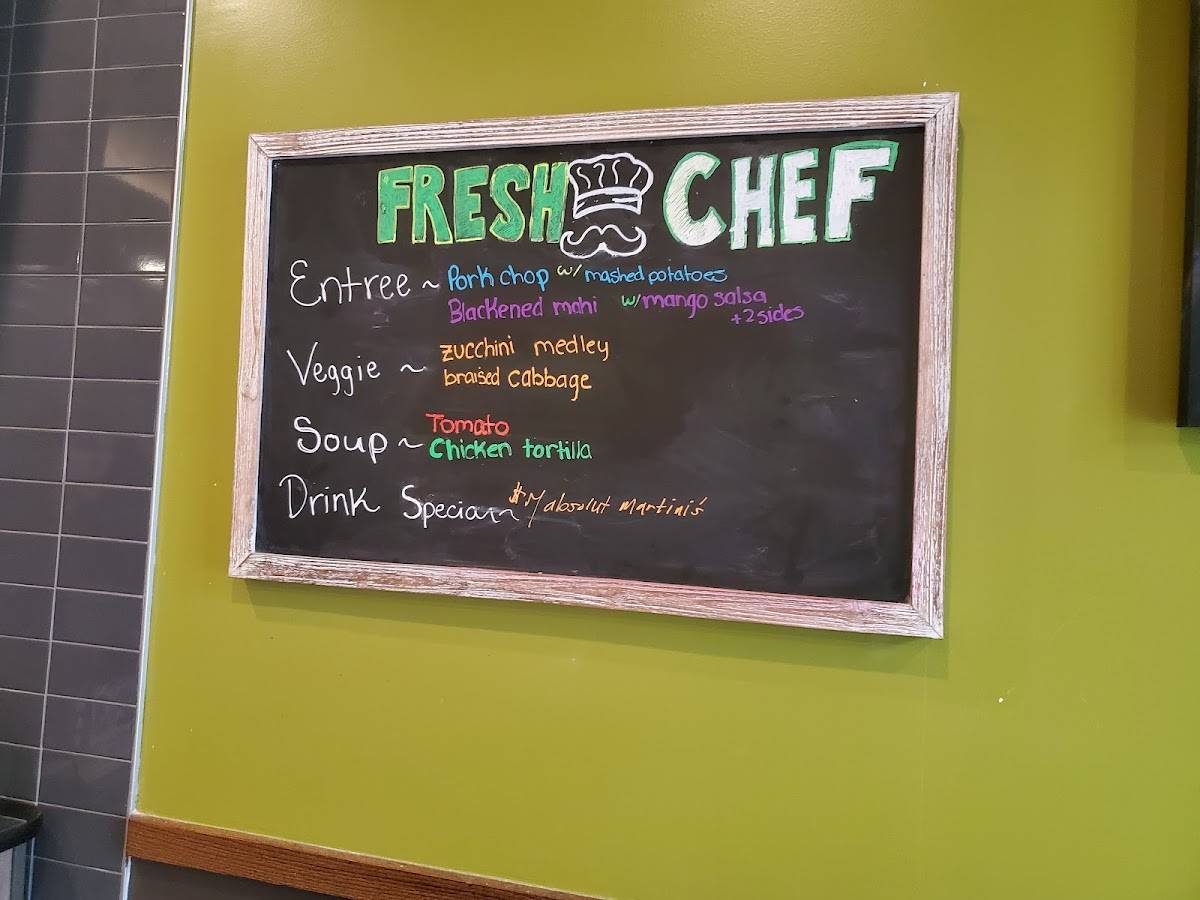 FRESH CHEF
Entree ~ Pork chop w/ mashed potatoes
Blackened mahi w/ mango salsa
+2 sides
Veggie ~ zucchini medley
braised cabbage
Soup ~ Tomato
Chicken tortilla
Drink absolut martini's